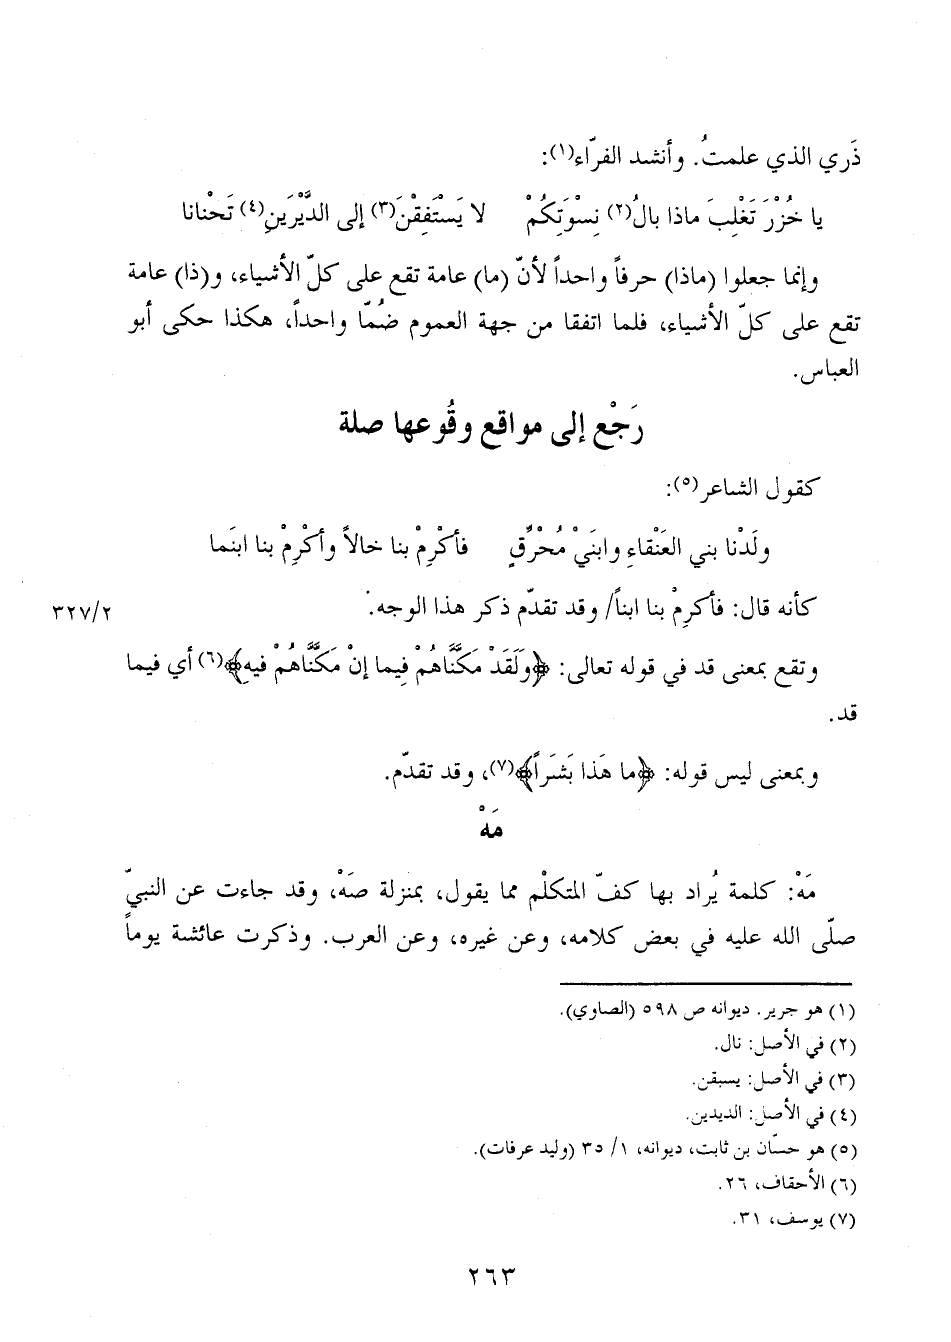 ذَري الذي علمتُ. وأنشد الفرّاء(١):
يا خُزْرَ تَغْلِبَ ماذا بالُ(٢) نِسْوَتِكُمْ لا يَسْتَفِقْنَ(٣) إلى الدَّيْرَينِ(٤) تَحْنانا
وإنما جعلوا (ماذا) حرفاً واحداً لأنّ (ما) عامة تقع على كلّ الأشياء، و(ذا) عامة
تقع على كلّ الأشياء، فلما اتفقا من جهة العموم ضُمّا واحداً، هكذا حكى أبو
العباس.
رَجْع إلى مواقع وقُوعها صلة
كقول الشاعر(٥):
ولَدْنا بني العَنْقاءِ وابنَيْ مُحْرِّقٍ فأكْرِمْ بنا خالاً وأكْرِمْ بنا ابنَما
كأنه قال: فأكرِمْ بنا ابناً/ وقد تقدّم ذكر هذا الوجه.
٣٢٧/٢
وتقع بمعنى قد في قوله تعالى: ﴿وَلَقَدْ مَكَّنَّاهُمْ فِيما إنْ مَكَّنَّاهُمْ فيهِ﴾(٦) أي فيما
قد.
وبمعنى ليس قوله: ﴿ما هَذا بَشَراً﴾(٧)، وقد تقدّم.
مَهْ
مَهْ: كلمة يُراد بها كفّ المتكلْم مما يقول، بمنزلة صَهْ، وقد جاءت عن النبيّ
صلّى الله عليه في بعض كلامه، وعن غيره، وعن العرب. وذكرت عائشة يوماً
(١) هو جرير. ديوانه ص ٥٩٨ (الصاوي).
(٢) في الأصل: نال.
(٣) في الأصل: يسبقن.
(٤) في الأصل: الديدين.
(٥) هو حسّان بن ثابت، ديوانه، ١/ ٣٥ (وليد عرفات).
(٦) الأحقاف، ٢٦.
(٧) يوسف، ٣١.
٢٦٣